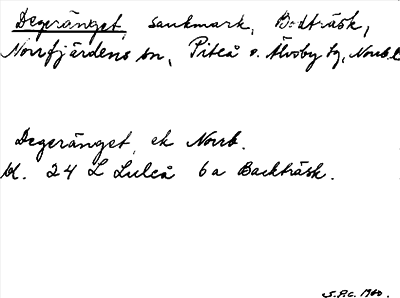 Degeränget, sankmark,
Norrfjärdens sn, Piteå o. Älvsby tg, Norrb. l
Degeränget, ek Norrb.
bl. 24 L Luleå 6a Backträsk.